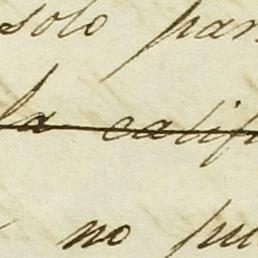 solo par
la calif
no pu